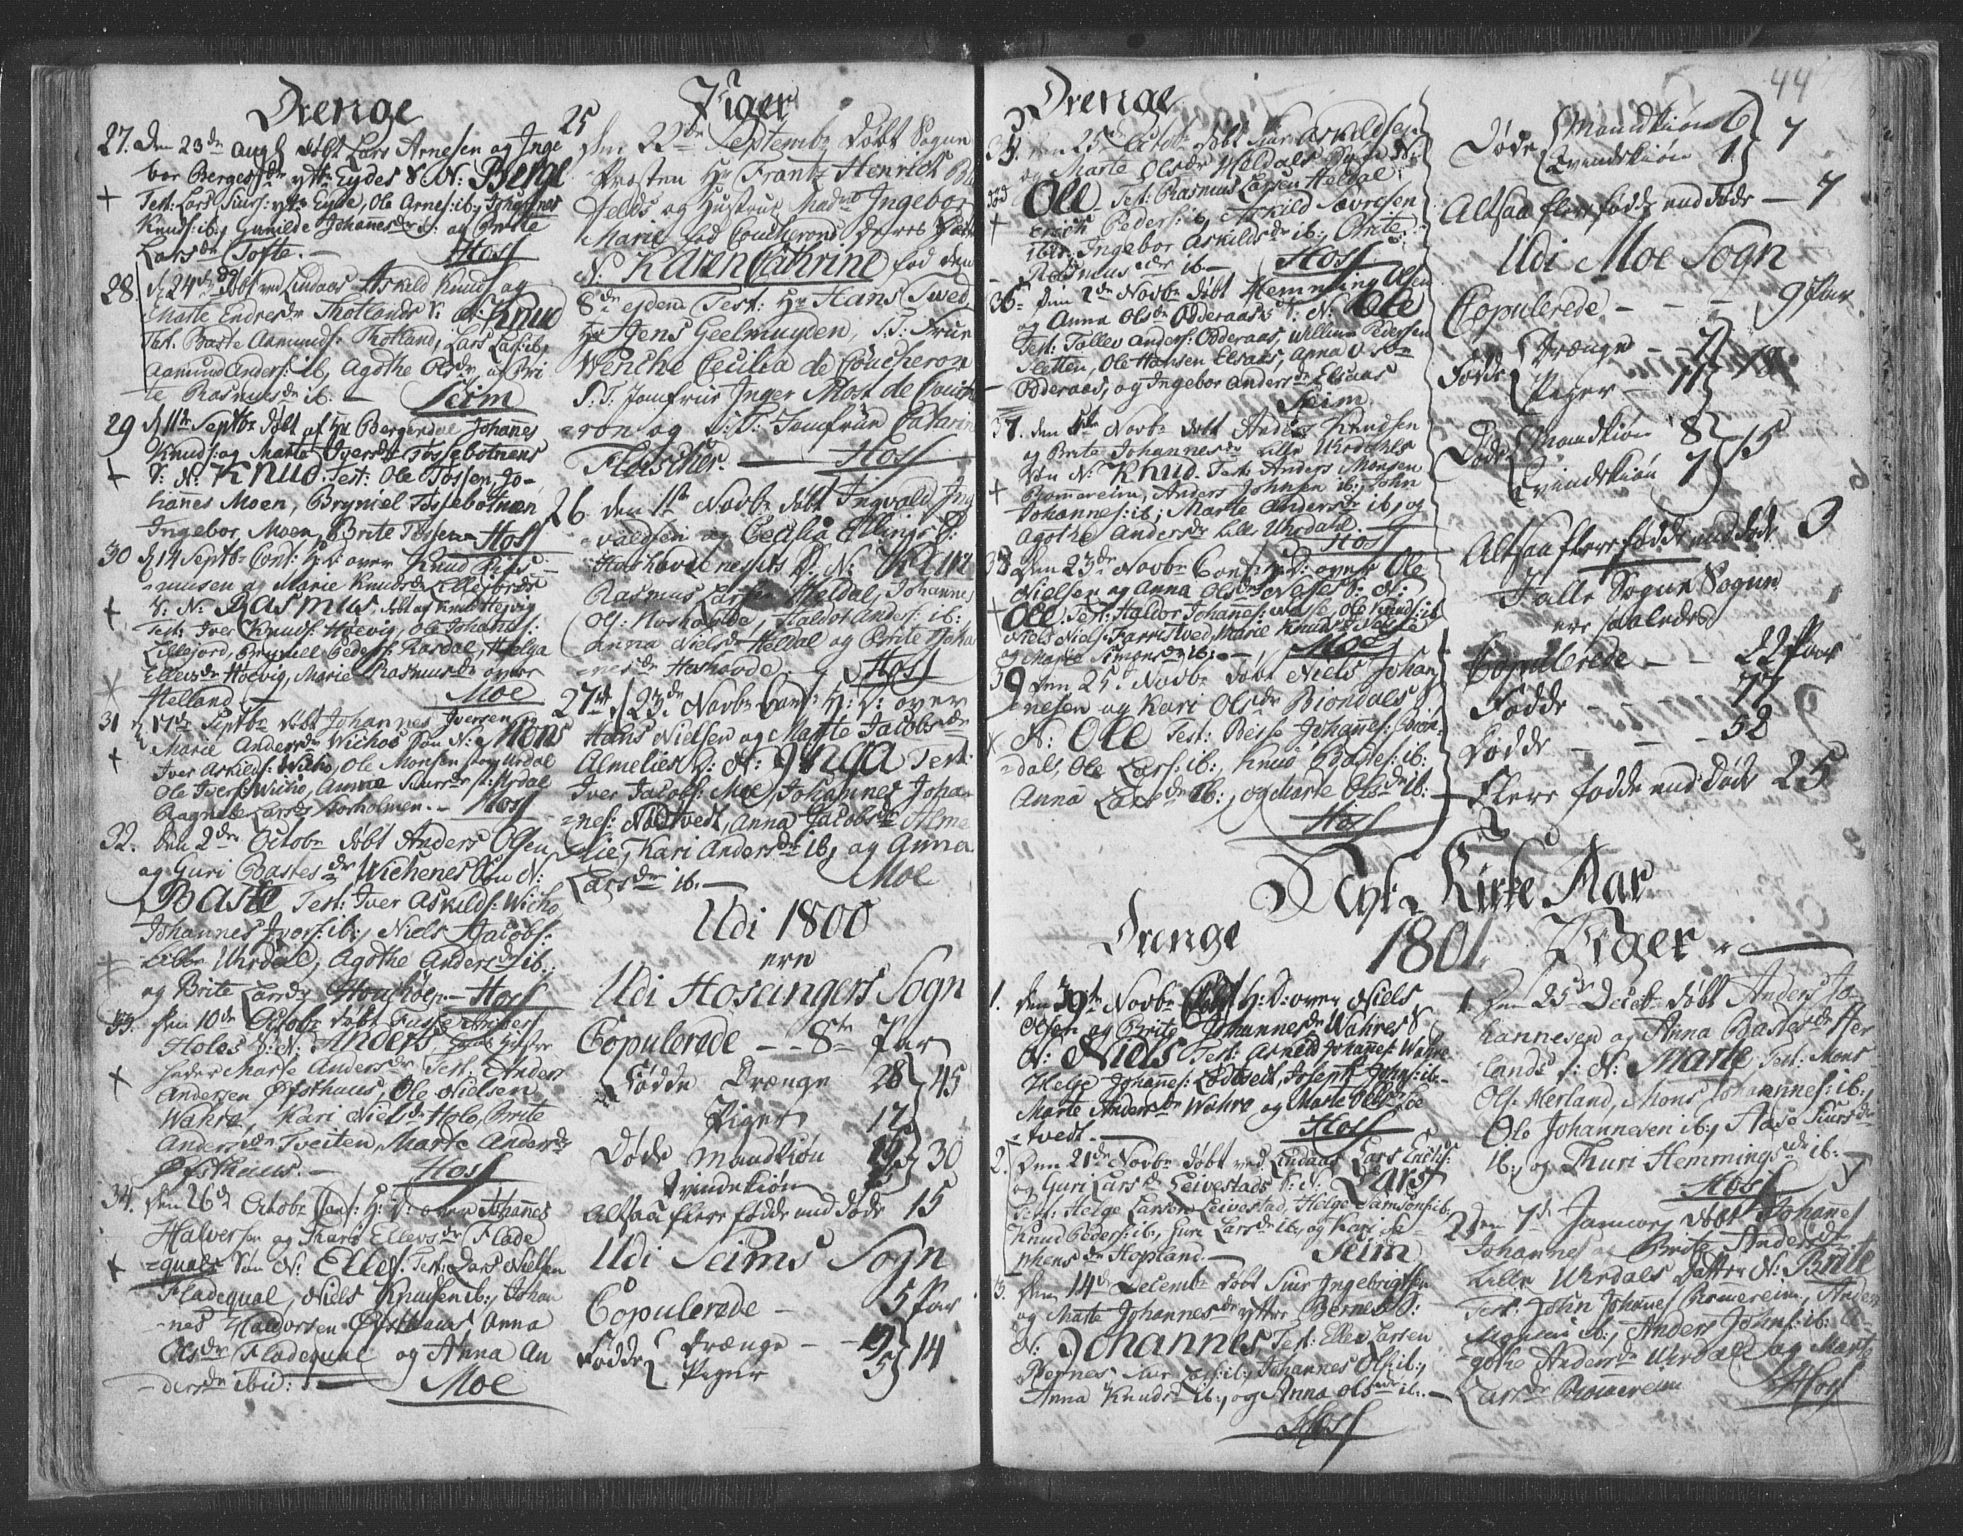 Drenge
27. Den 23de Augs døbt Lars Arnesen og Inge
bor Bergesdr ytte Eydes S. N: Berge
Test: Lars Siurs: ytte Eyde, Ole Arnes: ib:, Johannes
Knuds: ib:, Gunilde Johannesdr ib: og Brite
Larsdr Tofte. — Hoss
28. d 24de døbt ved Lindaas Askild Knuds: og
Marte Endresdr Thotlands S: N: Knud
Test: Baste Aamunds: Thotland, Lars Lars: ib,
Aamund Anders: ib, Agothe Olsdr og Bri
te Rasmusdr ib: — Seim
29 d 11te Septbr døbt af Hr Bergendal Johanes
Knuds: og Marta Iversdr Tossebotnens
S: N: Knud. Test: Ole Tossen, Jo-
hannes Moen, Bryniel Tossebotnen
Ingebor Moen, Brite Tossen Hoss
30 d 14 Septbr Conf: H: D: over Knud Ras-
musen og Marie Knudsdr Lillefords
S: N: Rasmus
Test: Iver Knuds: Høevig, Ole Johans:
Lillefjord, Brynill Peders: Kasdal, Helga
Ellensdr Høevig, Marie Rasmusdr øvre
Helland Moe
31 d 17de Septbr døbt Johannes Iversen og
Marie Andersdr Wichos Søn N: Mons
Iver Askilds: Wicho, Ole Monsen store Urdal
Ole Ivers: Wicho, Anna Siursdr st: Urdal
Ragnele Larsdr Storholmen. — Hoss
32. Den 2den Octobr døbt Anders Olsen
og Guri Bastesdr Wichenes Søn N:
Baste Test: Iver Askilds: Wicho,
Johannes Ivers: ib:, Niels Jacobs:
Lille Uhrdal, Agothe Andersdr ib:
og Brite Larsdr — Hoss
33. Den 10de Octobr døbt
Holes S: N: Anders
Marte Andersdr Test: Anders
Andersen Østhuus, Ole Nielsen
Wahre, Kari Nielsdr Hole, Brite
Andersdr Tveiten, Marte Andersdr
Østhuus. — Hoss
34. Den 26de Octobr Conf: H: D: over Johannes
Halversen og Kari Ellevsdr Flade
=quals Søn N: Ellef Test: Lars Nielsen
Fladequal, Niels Knudsen ib:, Johan
nes Haldorsen Østhuus Anna
Olsdr Fladequal og Anna An
=dersdr ibid: — Moe
Piger
25
Den 22de Septembr døbt Sogne
Præsten Hr Frantz Henrich
og Hustrue Madme Ingebor
Marie fød Coucherons deres
N. Karen Cathrine fød den
8de ejden Test: Hr Hans Tved
Hr Jens Geelmuyden, S:T: Frue
Wenche Cecilia de Coucheron
S:T: Jomfrue Inger Marie de Couche
=ron og S:T: Jomfrue Catarin
Fleischer. — Hoss
26. den 1ste Novbr døbt Ingvald Ing
=valdsen og Cecilia Ellings
D: N:
Rasmus Larsen Heldal, Johannes
Ols: Hoshovde, Haldor Anders: ib:
Anna Nielsdr Heldal og Brite Johan
=nesdr Hoshovde Hoss
27de d 23de Novbr Conf: H: D: over
Hans Nielsen og Marte Jacobsdr
Almelies D: N: Inga Test:
Iver Jacobs: Moe, Johannes Johan
=nes: Nødtvedt, Anna Jacobsdr Alme
lie, Kari Andersdr ib:, og Anna
Larsdr ib. — Moe
Udi 1800
ere
Udi Hosangers Sogn
Copulerede — 8te Par
Fødde Drænge 28 } 45
Piger 17
Døde Mandkiøn } 30
Qvindekiøn
Altsaa flere fødde end døde 15
Udi Seims Sogn
Copulerede — 5 Par
Fødde { Drænge — } 14
Piger 5
44
Drenge
35. Den 25de Octobr døbt Askildsen
og Marte Olsdr Heldals Søn N:
Ole Test: Rasmus Larsen Heldal,
Peders: ib, Askild Sævresen
ibid, Ingebor Askildsdr ib:, Brite
Rasmusdr ib — Hoss
36. Den 2de Novbr døbt Hemming Olsen
og Anna Olsdr Odderaas S: N: Ole
Test: Tollev Anders: Odderaas, Willum Pedersen
Sletten, Ole Hansen Elsaas, Anna Olsdr
Odderaas, og Ingebor Andersdr Elsaas
Seim
37. den Novbr døbt Anders Knudsen
og Brite Johannesdr Lille Urdahls
Søn N: Knud. Test: Anders Monsen
Romereim, Anders Johnsen ib:, John
Johannes: ib:, Marte Andersdr ib:, og
Agothe Andersdr Lille Uhrdal.
Hoss
38 Den 23de Novbr Conf: H: D: over Ole
Nielsen og Anna Olsdr Neses S: N:
Ole. Test: Haldor Johannes: Nese, Ole Knuds: ib
Niels Niels: Farristved, Marie Knudsdr Nese
og Marie Simonsdr ib: — Moe
39 Den 25. Novbr døbt Niels Johan
nesen og Kari Olsdr Biordals S:
N: Ole Test: Beise Johannes: Biør=
=dals, Ole Lars: ib:, Knud Bastes: ib:
Anna Larsdr ib:, og Marte Olsdr ib:
Hoss
Døde { Mandkiøn 6 } 7
Qvindekiøn 1
Altsaa flere fødde end døde — 7
Udi Moe Sogn
Copulerede — — — 9 Par
Fødde { Drænge — 7
Piger — 11 } 18
Døde { Mandkiøn 8 } 15
Qvindekiøn 7
Altsaa flere fødde end døde 3
I alle Sogne Sogne
ere saaledes
Copulerede — — 22 Par
Fødde — — — 77
Dødde — — — 52
Flere fødde end døde 25
Nyt Kirke Aar
1801.
Drenge
1. Den 30te Novbr Conf H: D: over Niels
Olsen og Brite Johannesdr Wahres S
N: Niels Test: Arne Johannes: Wahre
Helge Johannes: Lødtvedt, Joseph Johns: ib:
Marte Andersdr Wahre og Marte Olsdr Lø
=tvedt. — Hoss
2. Den 21de Novbr døbt ved Lindaas Lars Erichs:
og Guri Larsdr Leivestads S: N: Lars
Test: Helge Larsen Leivestad, Helge Samsons: ib,
Knud Peders: ib:, Guri Larsdr ib, og Kari Ste
phensdr Hopland. — Seim
3. Den 14de Decembr døbt Siur Ingebrigtsen
og Marte Johannesdr ytter Bernes S:
N: Johannes Test: Ellev Larsen
Bernes, Siur Lars: ib:, Johannes Ols: ib:,
Anna Knudsdr ib:, og Anna Olsdr ib: —
Hoss
Piger
1 Den 25de Decbr døbt Anders Jo
hannesen og Anna Bastesdr Her
lands D: N: Marie, Test: Mons
Ols: Herland, Mons Johannes: ib:,
Ole Johannesen ib:, Aase Siursdr
ib:, og Thuri Hemmingsdr ib: —
Hoss
2 Den 7de Januarj døbt Johanes
Johannes og Brite Andersdr
Lille Uhrdals Datter N: Brite
Test: John Johannes Romereim, Anders
Monsen ib:, Anders Johns: ib: A-
gothe Andersdr Urdal og Marte
Larsdr Romereim Hoss